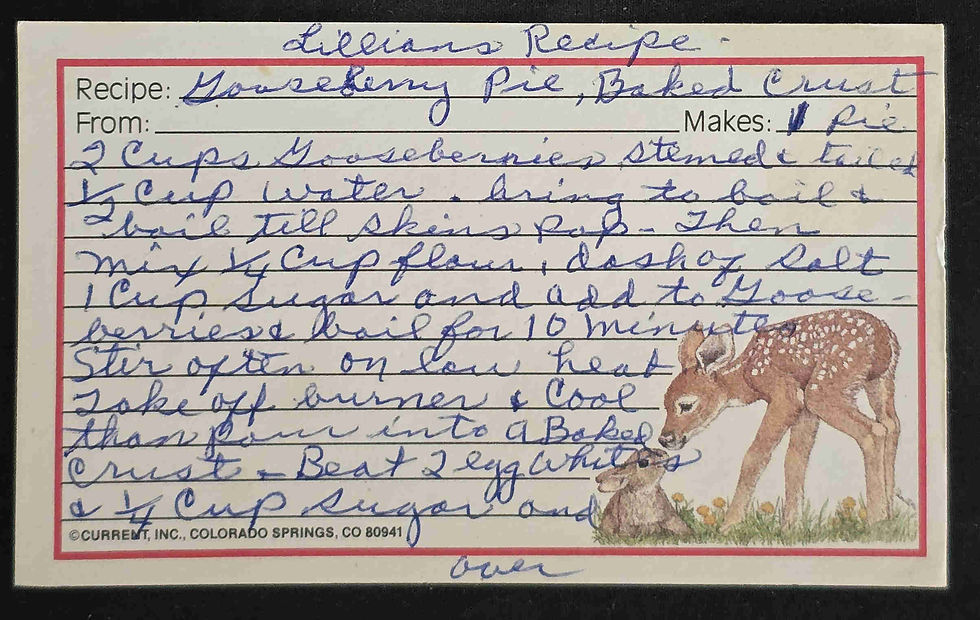 Lillians Recipe -
Recipe: Gooseberry Pie, Baked Crust
From: Makes: 1 Pie
2 Cups Gooseberries, stemed & tailed
1/2 Cup Water. bring to boil &
boil till skins pop - Then
mix 1/4 Cup flour, dash of Salt
1 Cup Sugar and add to Goose-
berries & boil for 10 minutes
Stir often on low heat
Take off burner & Cool
than pour into a Baked
Crust - Beat 2 egg whites
& 1/4 Cup Sugar and
©CURRENT, INC., COLORADO SPRINGS, CO 80941
over